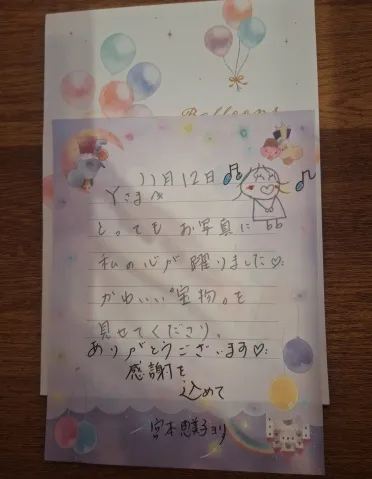 Balloons
11月12日
Yさま☆
とってもお写真に
私の心が躍りました♡
かわいい"宝物"を
見せてくださり、
ありがとうございます♡
感謝を
込めて
宮本恵美子より